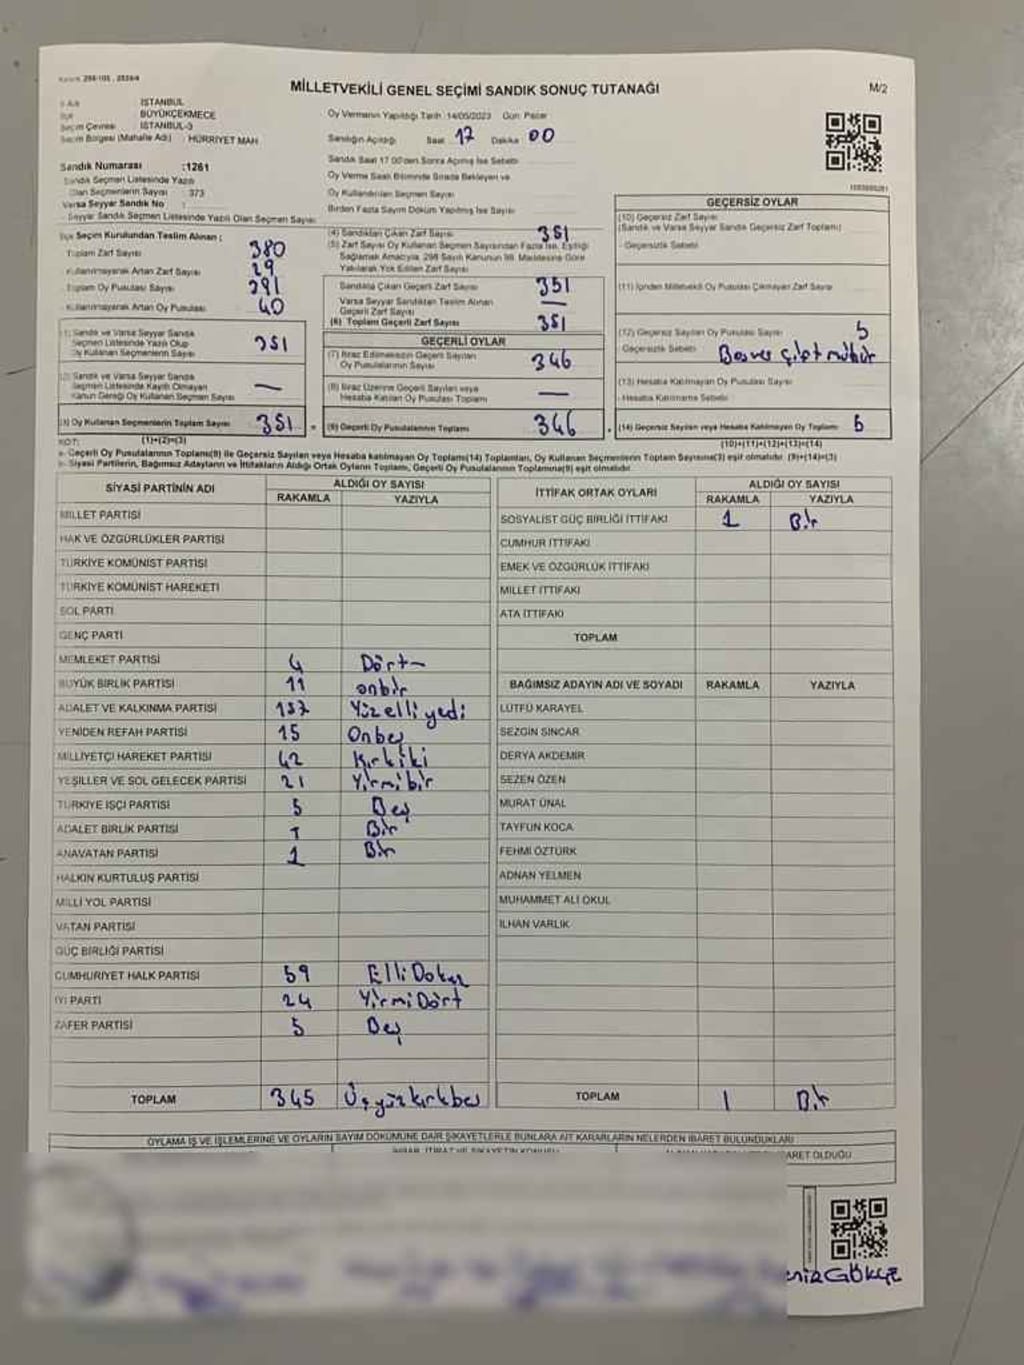 MİLLETVEKİLİ GENEL SEÇİMİ SANDIK SONUÇ TUTANAĞI
M/2
İSTANBUL
BÜYÜKÇEKMECE
Seçim Çevresi : İSTANBUL-3
Seçim Bölgesi (Mahalle Adı) : HÜRRİYET MAH
Oy Vermenin Yapıldığı Tarih :14/05/2023 Gün: Pazar
Sandığın Açıldığı Saat 17 Dakika 00
Sandık Saat 17.00'den Sonra Açılmış İse Sebebi
Oy Verme Saati Bitiminde Sırada Bekleyen ve
Oy Kullandırılan Seçmen Sayısı
Birden Fazla Sayım Döküm Yapılmış İse Sayısı
Sandık Numarası :1261
Sandık Seçmen Listesinde Yazılı
Olan Seçmenlerin Sayısı : 373
Varsa Seyyar Sandık No :
Seyyar Sandık Seçmen Listesinde Yazılı Olan Seçmen Sayısı
İlçe Seçim Kurulundan Teslim Alınan :
Toplam Zarf Sayısı 380
Kullanılmayarak Artan Zarf Sayısı 29
Toplam Oy Pusulası Sayısı 291
Kullanılmayarak Artan Oy Pusulası 40
(1) Sandık ve Varsa Seyyar Sandık
Seçmen Listesinde Yazılı Olup
Oy Kullanan Seçmenlerin Sayısı 351
(2) Sandık ve Varsa Seyyar Sandık
Seçmen Listesinde Kayıtlı Olmayan
Kanun Gereği Oy Kullanan Seçmen Sayısı —
(3) Oy Kullanan Seçmenlerin Toplam Sayısı 351
(1)+(2)=(3)
(4) Sandıktan Çıkan Zarf Sayısı 351
(5) Zarf Sayısı Oy Kullanan Seçmen Sayısından Fazla İse, Eşitliği
Sağlamak Amacıyla, 298 Sayılı Kanunun 98. Maddesine Göre
Yakılarak Yok Edilen Zarf Sayısı
Sandıkta Çıkan Geçerli Zarf Sayısı 351
Varsa Seyyar Sandıktan Teslim Alınan
Geçerli Zarf Sayısı —
(6) Toplam Geçerli Zarf Sayısı 351
GEÇERLİ OYLAR
(7) İtiraz Edilmeksizin Geçerli Sayılan
Oy Pusulalarının Sayısı 346
(8) İtiraz Üzerine Geçerli Sayılan veya
Hesaba Katılan Oy Pusulası Toplamı —
(9) Geçerli Oy Pusulalarının Toplamı 346
GEÇERSİZ OYLAR
(10) Geçersiz Zarf Sayısı
(Sandık ve Varsa Seyyar Sandık Geçersiz Zarf Toplamı)
- Geçersizlik Sebebi
(11) İçinden Milletvekili Oy Pusulası Çıkmayan Zarf Sayısı
(12) Geçersiz Sayılan Oy Pusulası Sayısı 5
Geçersizlik Sebebi
(13) Hesaba Katılmayan Oy Pusulası Sayısı
- Hesaba Katılmama Sebebi
(14) Geçersiz Sayılan veya Hesaba Katılmayan Oy Toplamı 5
(10)+(11)+(12)+(13)=(14)
NOT:
a- Geçerli Oy Pusulalarının Toplamı(9) ile Geçersiz Sayılan veya Hesaba katılmayan Oy Toplamı(14) Toplamları, Oy Kullanan Seçmenlerin Toplam Sayısına(3) eşit olmalıdır. (9)+(14)=(3)
b- Siyasi Partilerin, Bağımsız Adayların ve İttifakların Aldığı Ortak Oyların Toplamı, Geçerli Oy Pusulalarının Toplamına(9) eşit olmalıdır.
SİYASİ PARTİNİN ADI ALDIĞI OY SAYISI
RAKAMLA YAZIYLA
MİLLET PARTİSİ
HAK VE ÖZGÜRLÜKLER PARTİSİ
TÜRKİYE KOMÜNİST PARTİSİ
TÜRKİYE KOMÜNİST HAREKETİ
SOL PARTİ
GENÇ PARTİ
MEMLEKET PARTİSİ 4 Dört
BÜYÜK BİRLİK PARTİSİ 11 onbir
ADALET VE KALKINMA PARTİSİ 157 Yüzelliyedi
YENİDEN REFAH PARTİSİ 15 Onbeş
MİLLİYETÇİ HAREKET PARTİSİ 42 Kırkiki
YEŞİLLER VE SOL GELECEK PARTİSİ 21 Yirmibir
TÜRKİYE İŞÇİ PARTİSİ 5 Beş
ADALET BİRLİK PARTİSİ 1 Bir
ANAVATAN PARTİSİ 1 Bir
HALKIN KURTULUŞ PARTİSİ
MİLLİ YOL PARTİSİ
VATAN PARTİSİ
GÜÇ BİRLİĞİ PARTİSİ
CUMHURİYET HALK PARTİSİ 59 Elli Dokuz
İYİ PARTİ 24 Yirmi Dört
ZAFER PARTİSİ 5 Beş
TOPLAM 345 Üçyüzkırkbeş
İTTİFAK ORTAK OYLARI ALDIĞI OY SAYISI
RAKAMLA YAZIYLA
SOSYALİST GÜÇ BİRLİĞİ İTTİFAKI 1 Bir
CUMHUR İTTİFAKI
EMEK VE ÖZGÜRLÜK İTTİFAKI
MİLLET İTTİFAKI
ATA İTTİFAKI
TOPLAM
BAĞIMSIZ ADAYIN ADI VE SOYADI RAKAMLA YAZIYLA
LÜTFÜ KARAYEL
SEZGİN SİNCAR
DERYA AKDEMİR
SEZEN ÖZEN
MURAT ÜNAL
TAYFUN KOCA
FEHMİ ÖZTÜRK
ADNAN YELMEN
MUHAMMET ALİ OKUL
İLHAN VARLIK
TOPLAM 1 Bir
OYLAMA İŞ VE İŞLEMLERİNE VE OYLARIN SAYIM DÖKÜMÜNE DAİR ŞİKAYETLERLE BUNLARA AİT KARARLARIN NELERDEN İBARET BULUNDUKLARI
İHBAR, İTİRAZ VE ŞİKAYETİN KONUSU
GÖKÇE